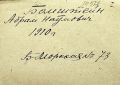 Болштейн
Абрам Наумович
1910 г.
Гр. Морская № 73